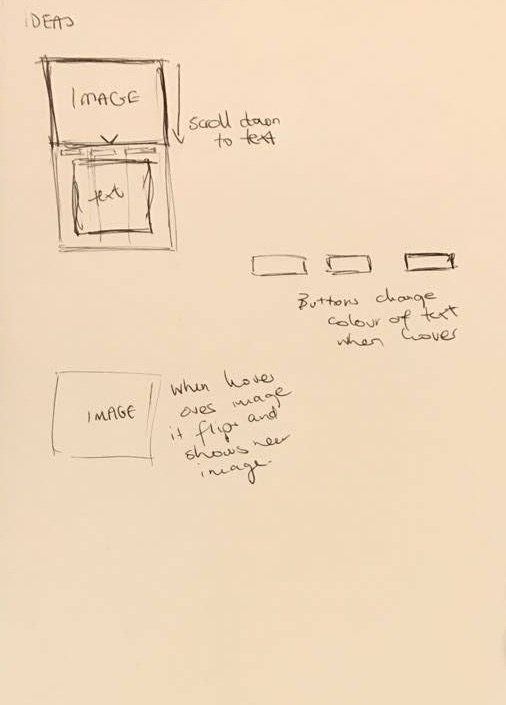 IDEAS
IMAGE
scroll down
to text
text
Buttons change
colour of text
when hover
IMAGE
when hover
over image
it flips and
shows new
image.